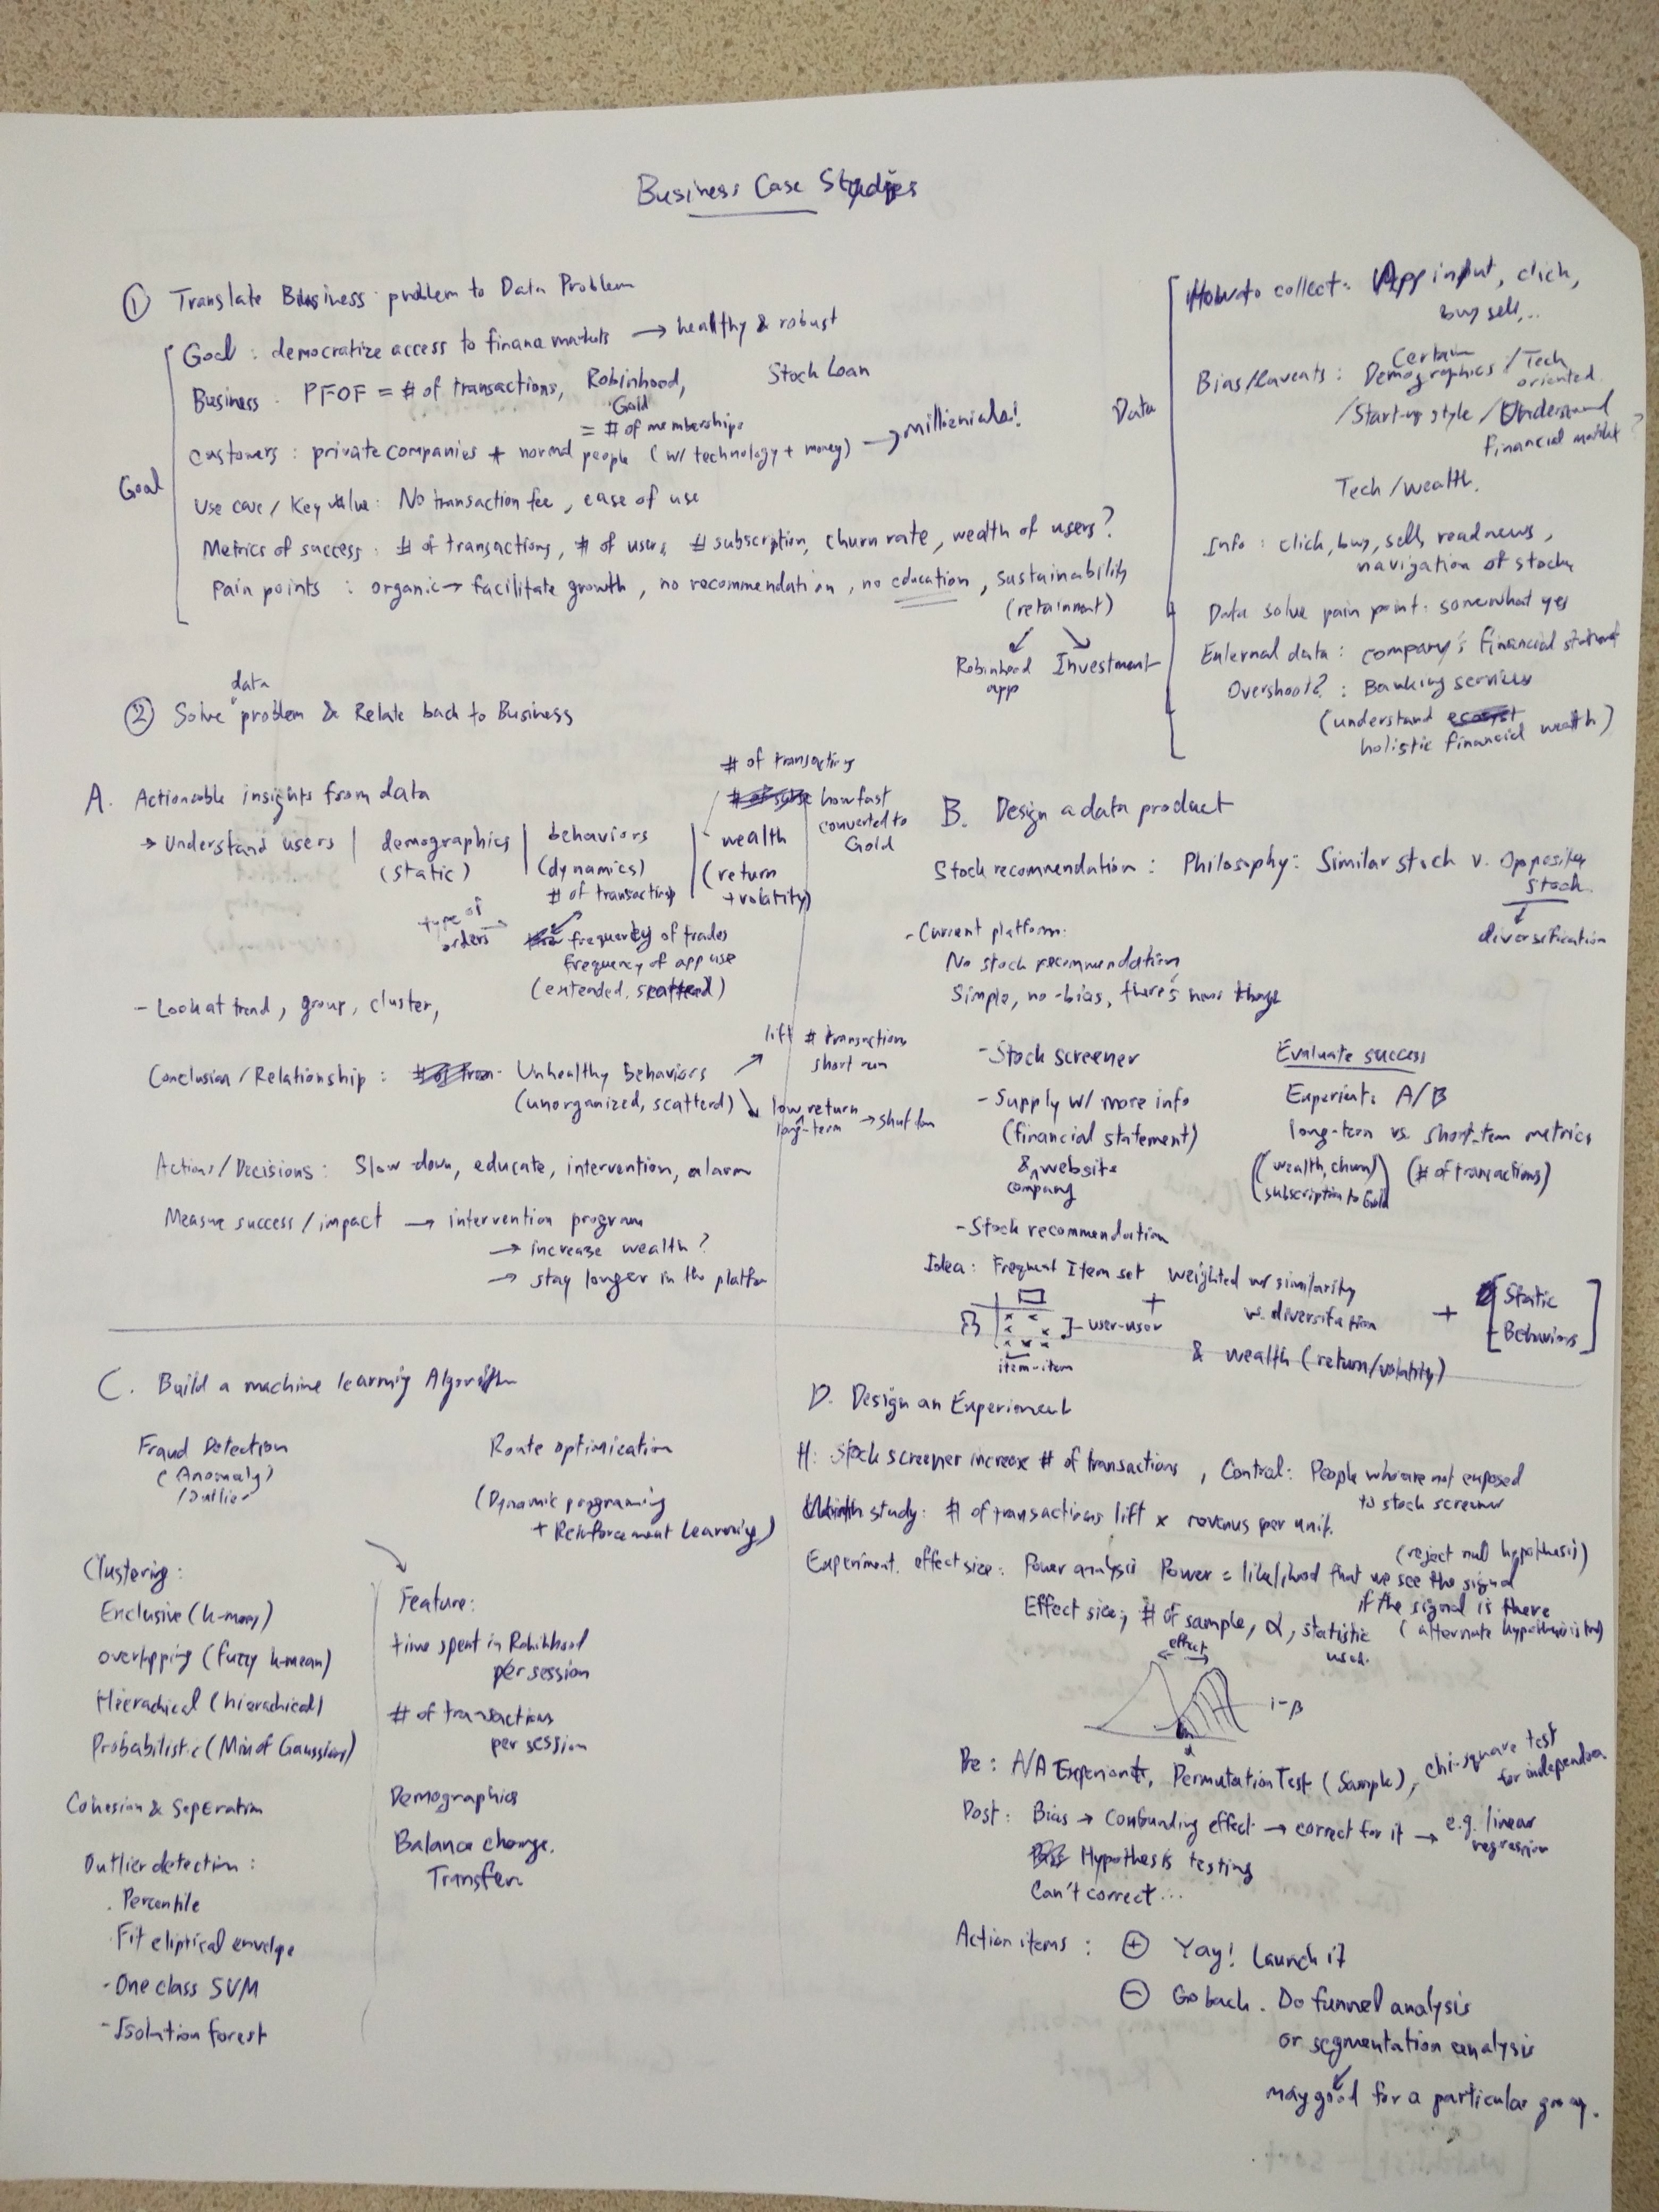 Business Case Studies
① Translate Business problem to Data Problem
Goal
Goal : democratize access to finance markets → healthy & robust
Business : PFOF = # of transactions, Robinhood, Stock Loan
Gold
= # of memberships
Customers : private companies + normal people (w/ technology + money) → millienials!
Use case / Key value : No transaction fee, ease of use
Metrics of success : # of transactions, # of users, # subscription, churn rate, wealth of users?
Pain points : organic → facilitate growth, no recommendation, no education, sustainability
(retainment)
Robinhood Investment
app
Data
How to collect : App input, click,
buy sell,..
Bias/Caveats : Certain
Demographics / Tech
oriented
/Start-up style / Understand
financial market ?
Tech / wealth.
Info : click, buy, sell, read news,
navigation of stocks
Data solve pain point : somewhat yes
External data : company's financial statement
Overshoot? : Banking services
(understand
holistic financial wealth)
② Solve data problem & Relate back to Business
A. Actionable insights from data
→ Understand users | demographics | behaviors | wealth
(static) (dynamics) (return
+ volatity)
# of transactions
how fast
converted to
Gold
# of transactions
type of
orders →
frequency of trades
frequency of app use
(extended, scatterd)
- Look at trend, group, cluster,
Conclusion / Relationship : Unhealthy behaviors
(unorganized, scatterd)
lift # transactions
short run
low return → shut down
long-term
Actions / Decisions : Slow down, educate, intervention, alarm
Measure success / impact → intervention program
→ increase wealth?
→ stay longer in the platfom
B. Design a data product
Stock recommendation : Philosophy : Similar stock v. Opposite
stock
diversification
- Current platform:
No stock recommendation
Simple, no-bias, there's news though
- Stock screener
- Supply w/ more info
(financial statement)
& company website
- Stock recommendation
Evaluate success
Experient: A/B
long-term vs. short-term metrics
(wealth, churn) (# of transactions)
subscription to Gold
Idea : Frequent Item set + weighted w/ similarity + [Static
vs. diversifation - Behaviors]
user-user
item-item
& wealth (return/volatity)
C. Build a machine learning Algorithm
Fraud Detection
(Anomaly)
/outlier
Route optimication
(Dynamic programing
+ Reinforcement Learning)
Clustering :
Exclusive (k-means)
overlapping (fuzzy k-mean)
Hierachical (hierachical)
Probabilistic (Mix of Gaussians)
Cohesion & Seperation
Outlier detection :
. Percentile
Fit eliptical envelope
- One class SVM
- Isolation forest
Feature:
time spent in Robinhood
per session
# of transactions
per session
Demographics
Balance change.
Transfers
D. Design an Experiment
H: Stock screener increase # of transactions, Control: People who are not exposed
to stock screener
study: # of transactions lift x revenus per unit.
Experiment. effect size : Power analysis Power = likelihood that we see the signal
(reject null hypothesis)
if the signal is there
(alternate hypothesis is true)
Effect size, # of sample, α, statistic
used.
effect
1-β
α
Pre : A/A Experiment, Permutation Test (Sample), chi-square test
for independence
Post : Bias → Confounding effect → correct for it → e.g. linear
regression
Hypothesis testing
Can't correct...
Action items : ⊕ Yay! Launch it
⊖ Go back. Do funnel analysis
or segmentation analysis
may good for a particular group.